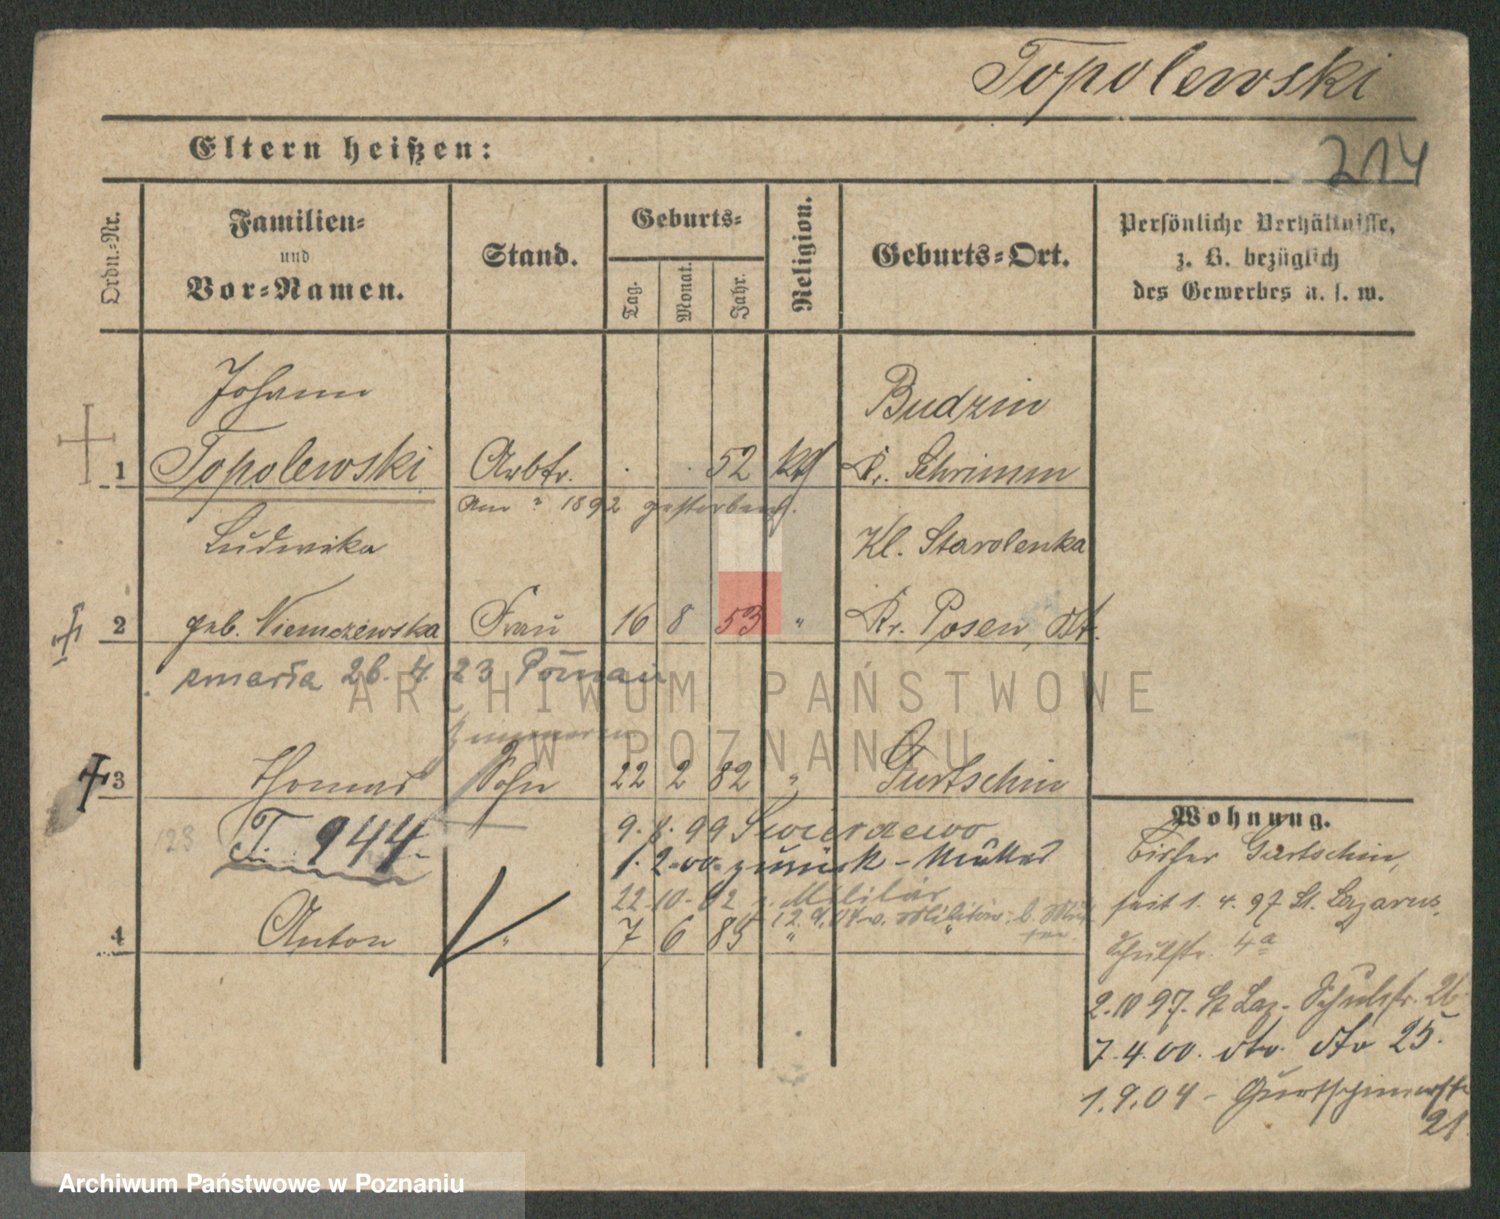 Topolewski
214
Eltern heißen:
Ordn.-Nr.
Familien-
und
Vor-Namen.
Stand.
Geburts-
Tag.
Monat.
Jahr.
Religion.
Geburts-Ort.
Persönliche Verhältnisse,
z. B. bezüglich
des Gewerbes u. s. w.
Johann
Budzin
1 Topolewski Arbtr. 52 kth Kr. Schrimm
Am ? 1892 gestorben.
Ludwika
Kl. Starolenka
2 geb. Niemczewska Frau 16 8 53 " Kr. Posen, Ost.
zmarła 26. 4. 23 Poznań
ARCHIWUM PAŃSTWOWE
W POZNANIU
3 Thomas Sohn 22 2 82 " Gurtschin
123 T. 944.
9. 8. 99 Swierzewo
1. 2. 00. zurück - Mutter
22-10-02 z. Militär
12. 9. 04 v. Militär z. Mutter
4 Anton " 7 6 85 " "
Wohnung.
Bisher Gurtschin,
seit 1. 4. 97 St. Lazarus,
Schulstr. 4a
2. 10 97. St Laz. Schulstr. 26
7. 4. 00. dto. dto 25.
1. 9. 04 - Gurtschinerstr
21
Archiwum Państwowe w Poznaniu